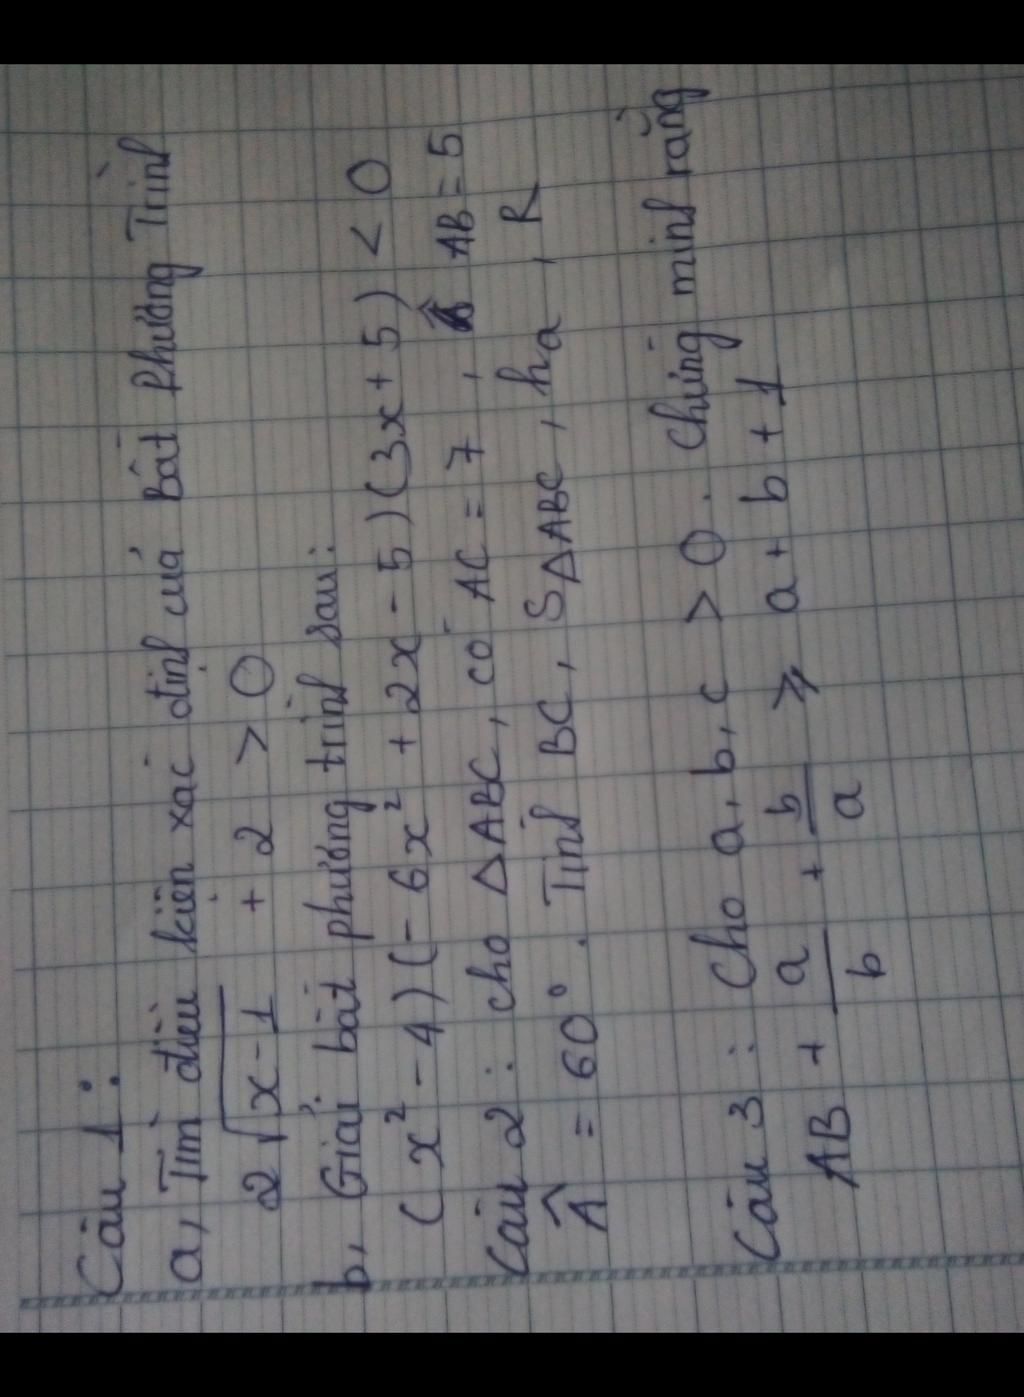 Câu 1:
a, Tìm điều kiện xác định của bất phương Trình
2√x-1 + 2 > 0
b, Giải bất phương trình sau:
(x² - 4)(-6x² + 2x - 5)(3x + 5) < 0
Câu 2: cho △ABC, có AC = 7, AB = 5
Â = 60°. Tính BC, S△ABC, ha, R
Câu 3: Cho a, b, c > 0. Chứng minh rằng
AB + a/b + b/a ⩾ a + b + 1